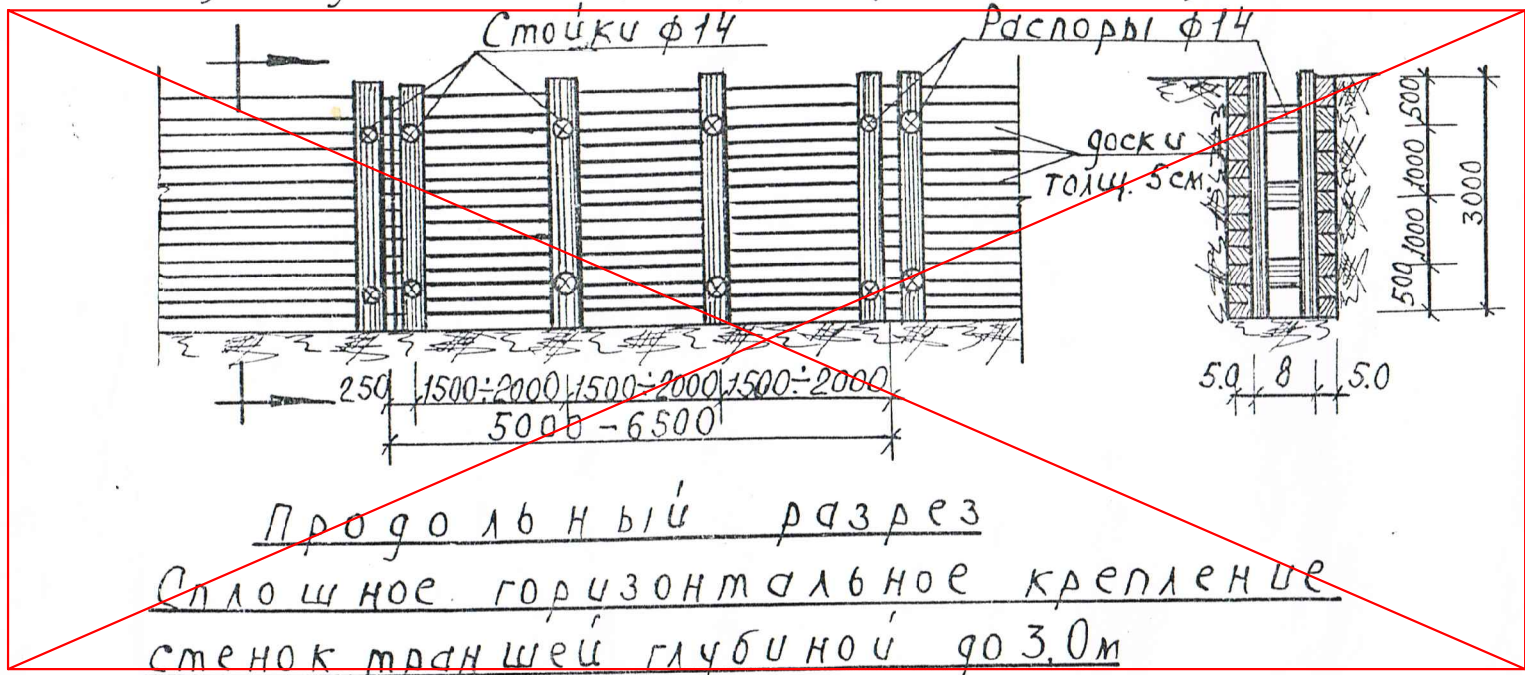 Стойки ф14
Распоры ф14
доски
толщ. 5см.
500
1000
1000
500
3000
250
1500÷2000
1500÷2000
1500÷2000
5000-6500
5.0
8
5.0
Продольный разрез
Сплошное горизонтальное крепление
стенок траншей глубиной до 3.0м